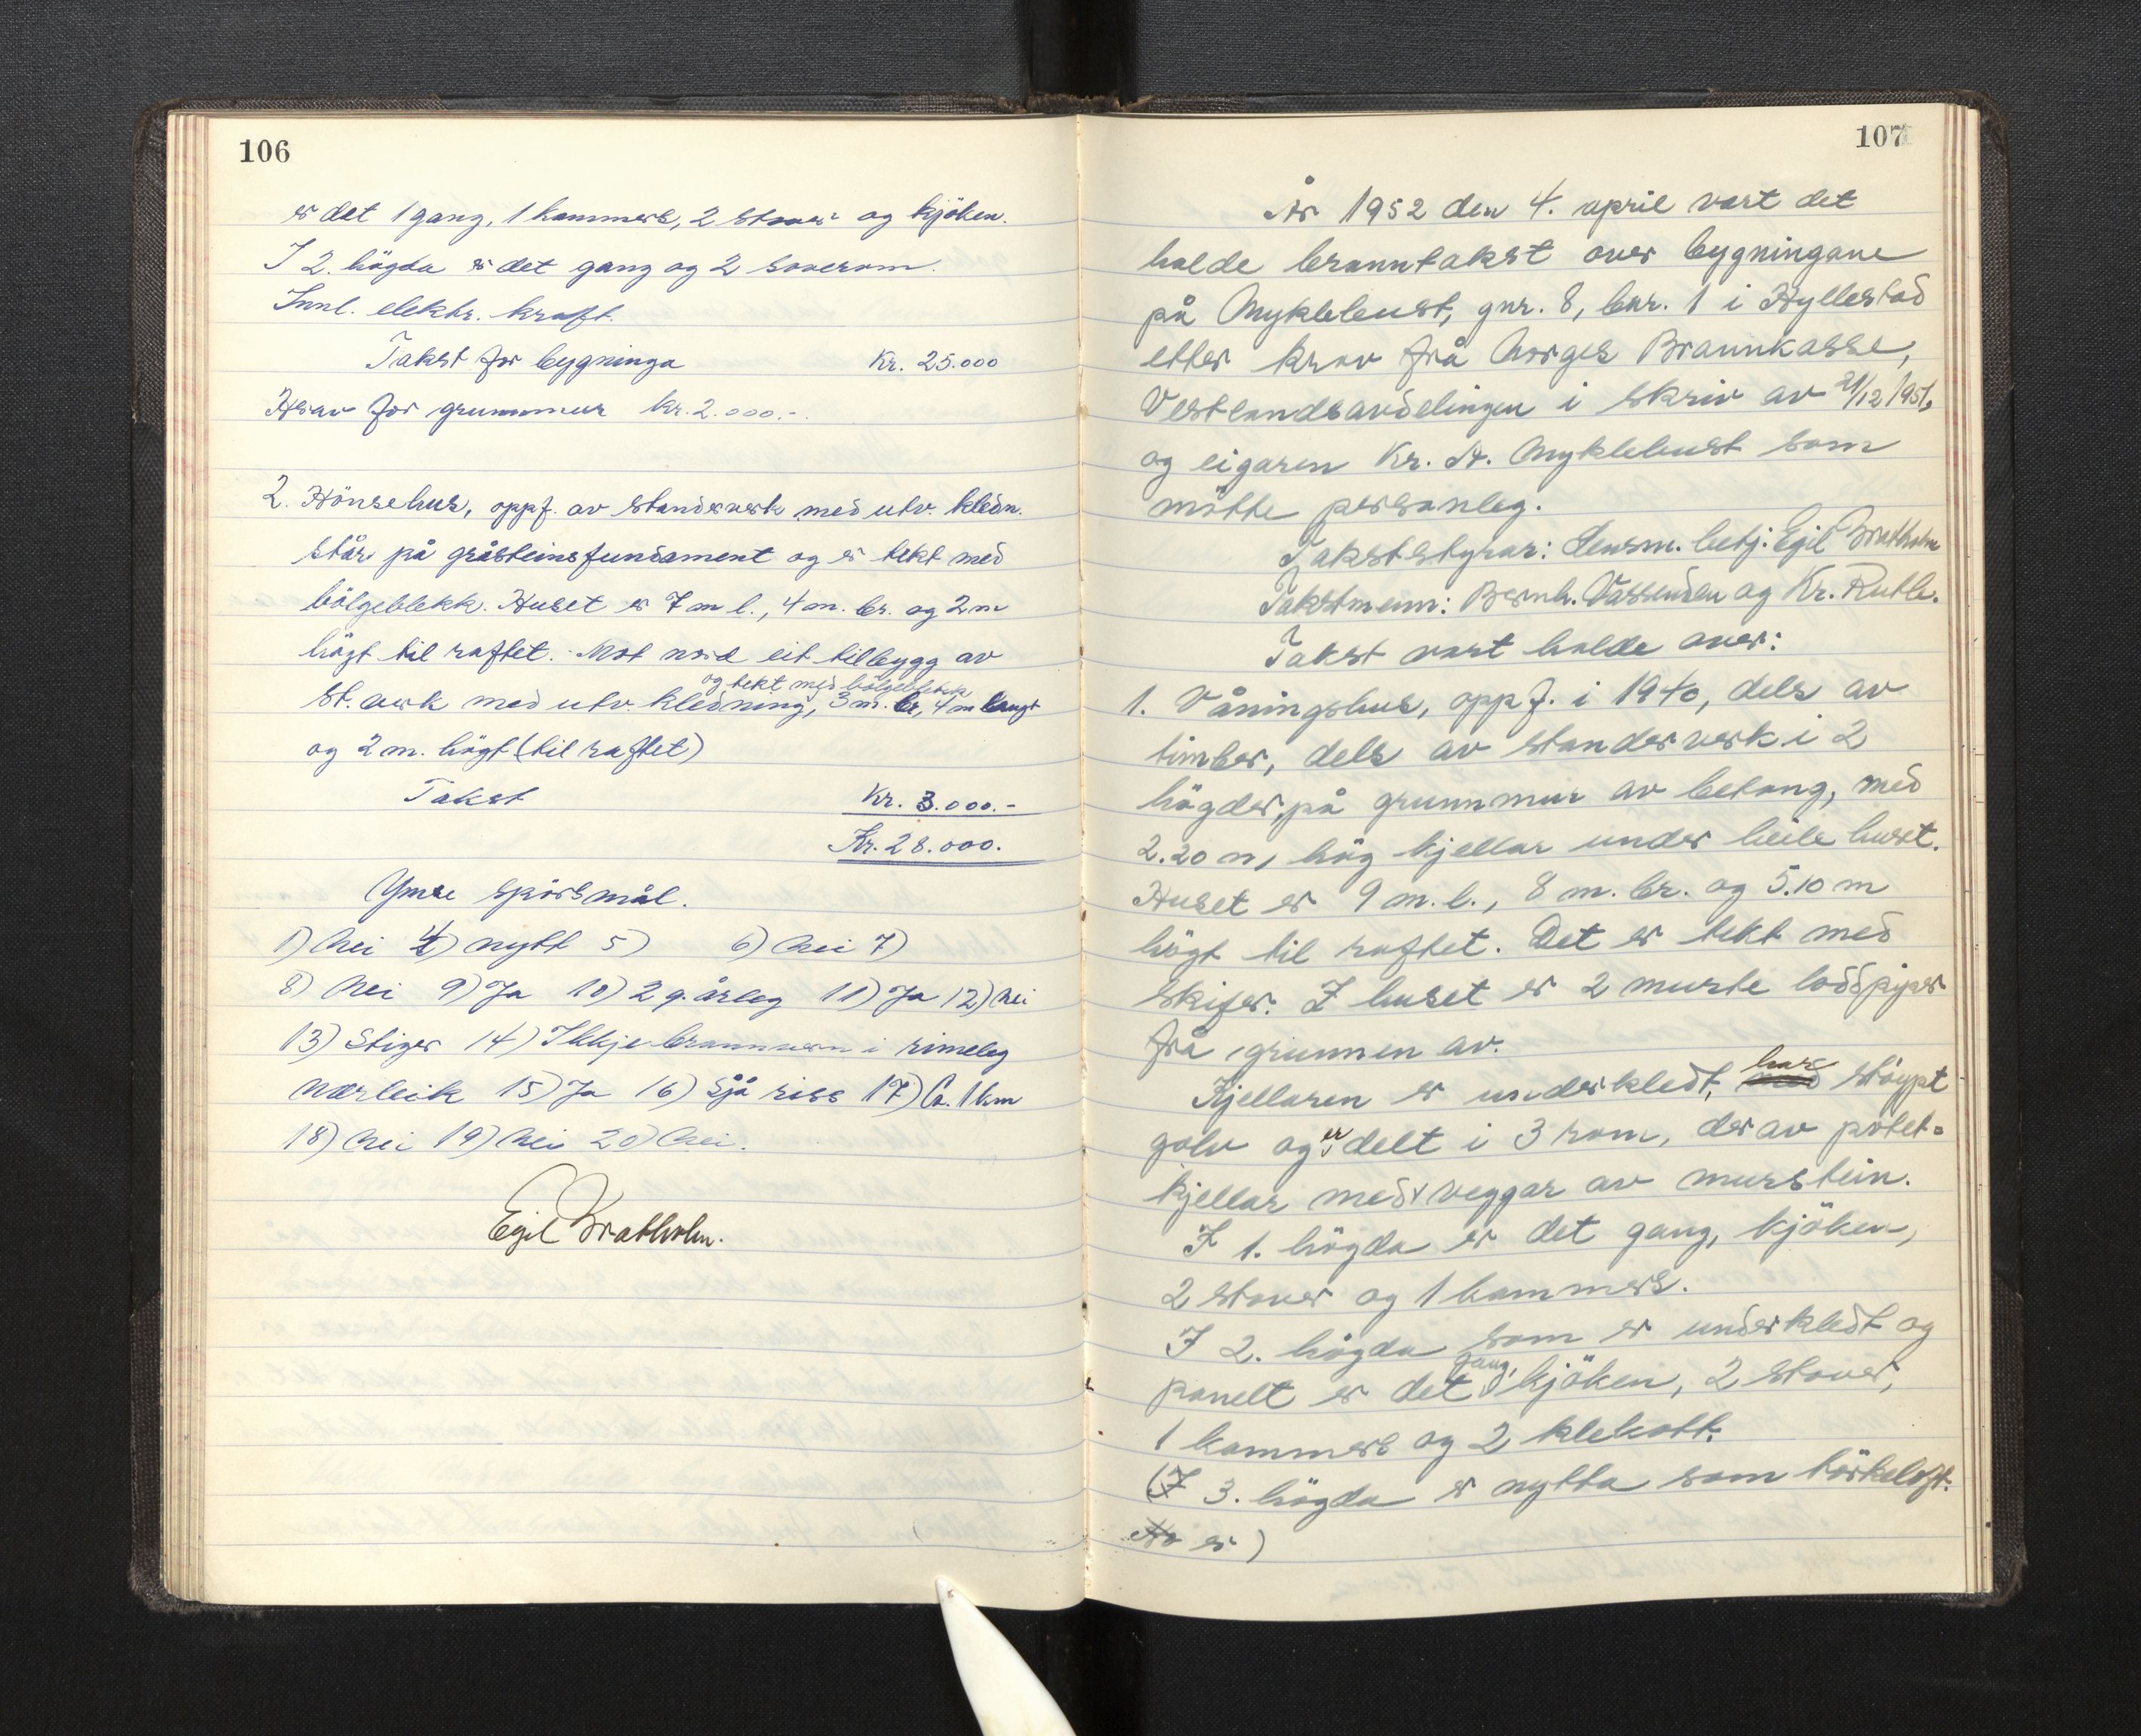 106
er det 1 gang, 1 kammers, 2 stover og kjöken.
I 2. högda er det gang og 2 soverom.
Innl. elektr. kraft.
Takst for bygninga Kr. 25.000
Herav for grunnmur kr. 2.000.-
2. Hönsehus, oppf. av standerverk med utv. kledn.
står på gråsteinsfundament og er tekt med
bölgeblekk. Huset er 7 m l., 4 m. br. og 2 m
högt til raftet. Mot nord eit tilbygg av
og tekt med bölgeblekk
st. verk med utv. kledning, 3 m. br, 4 m langt
og 2 m. högt (til raftet)
Takst Kr. 3.000.-
Kr. 28.000.
Ymse spörsmål.
1) Nei 4) nytt 5) 6) Nei 7)
8) Nei 9) Ja 10) 2 g. årleg 11) Ja 12) Nei
13) Stiger 14) Ikkje brannvern i rimeleg
nærleik 15) Ja 16) Sjå riss 17) Ca. 1 km
18) Nei 19) Nei 20) Nei.
Egil Bratholm.
107
År 1952 den 4. april vart det
halde branntakst over bygningane
på Myklebust, gnr. 8, bnr. 1 i Hyllestad
etter krav frå Norges Brannkasse,
Vestlandsavdelingen i skriv av 21/12 1951,
og eigaren Kr. A. Myklebust som
mötte personleg.
Takststyrar: Lensm. betj. Egil Bratholm
Takstmenn: Bernh. Vassenden og Kr. Rutle.
Takst vart halde over:
1. Våningshus, oppf. i 1940, dels av
timber, dels av standerverk i 2
högder, på grunnmur av betong, med
2.20 m, hög kjellar under heile huset.
Huset er 9 m. l., 8 m. br. og 5.10 m
högt til raftet. Det er tekt med
skifer. I huset er 2 murte loddpiper
frå grunnen av.
Kjellaren er underkledt, med har stöypt
golv og er delt i 3 rom, derav potet=
kjellar med veggar av murstein.
I 1. högda er det gang, kjöken,
2 stover og 1 kammers.
I 2. högda som er underkledt og
panelt er det gang, kjöken, 2 stover,
1 kammers og 2 klekott.
(I 3. högda er nytta som törkeloft.
No er)